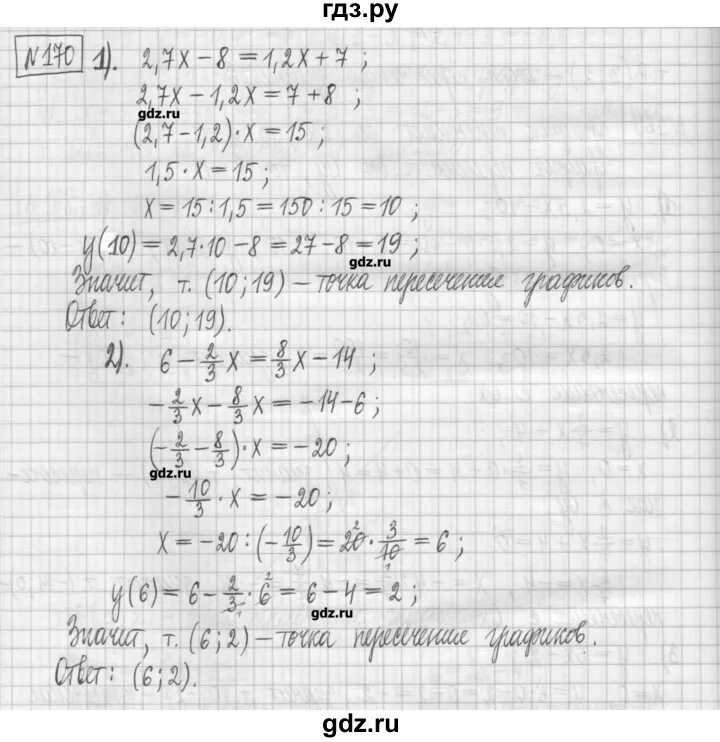 гдз.ру
№170 1). 2,7x – 8 = 1,2x + 7 ;
2,7x – 1,2x = 7 + 8 ;
gdz.ru
(2,7 – 1,2) · x = 15 ;
1,5 · x = 15 ;
x = 15 : 1,5 = 150 : 15 = 10 ;
y(10) = 2,7 · 10 – 8 = 27 – 8 = 19 ;
gdz.ru
Значит, т. (10 ; 19) – точка пересечения графиков.
Ответ: (10 ; 19).
2). 6 – 2/3 x = 8/3 x – 14 ;
– 2/3 x – 8/3 x = – 14 – 6 ;
(– 2/3 – 8/3) · x = – 20 ;
gdz.ru
– 10/3 · x = – 20 ;
x = – 20 : (– 10/3) = 20 2 · 3/10 1 = 6 ;
y(6) = 6 – 2/3 1 · 6 2 = 6 – 4 = 2 ;
gdz.ru
Значит, т. (6 ; 2) – точка пересечения графиков.
Ответ: (6 ; 2).
gdz.ru